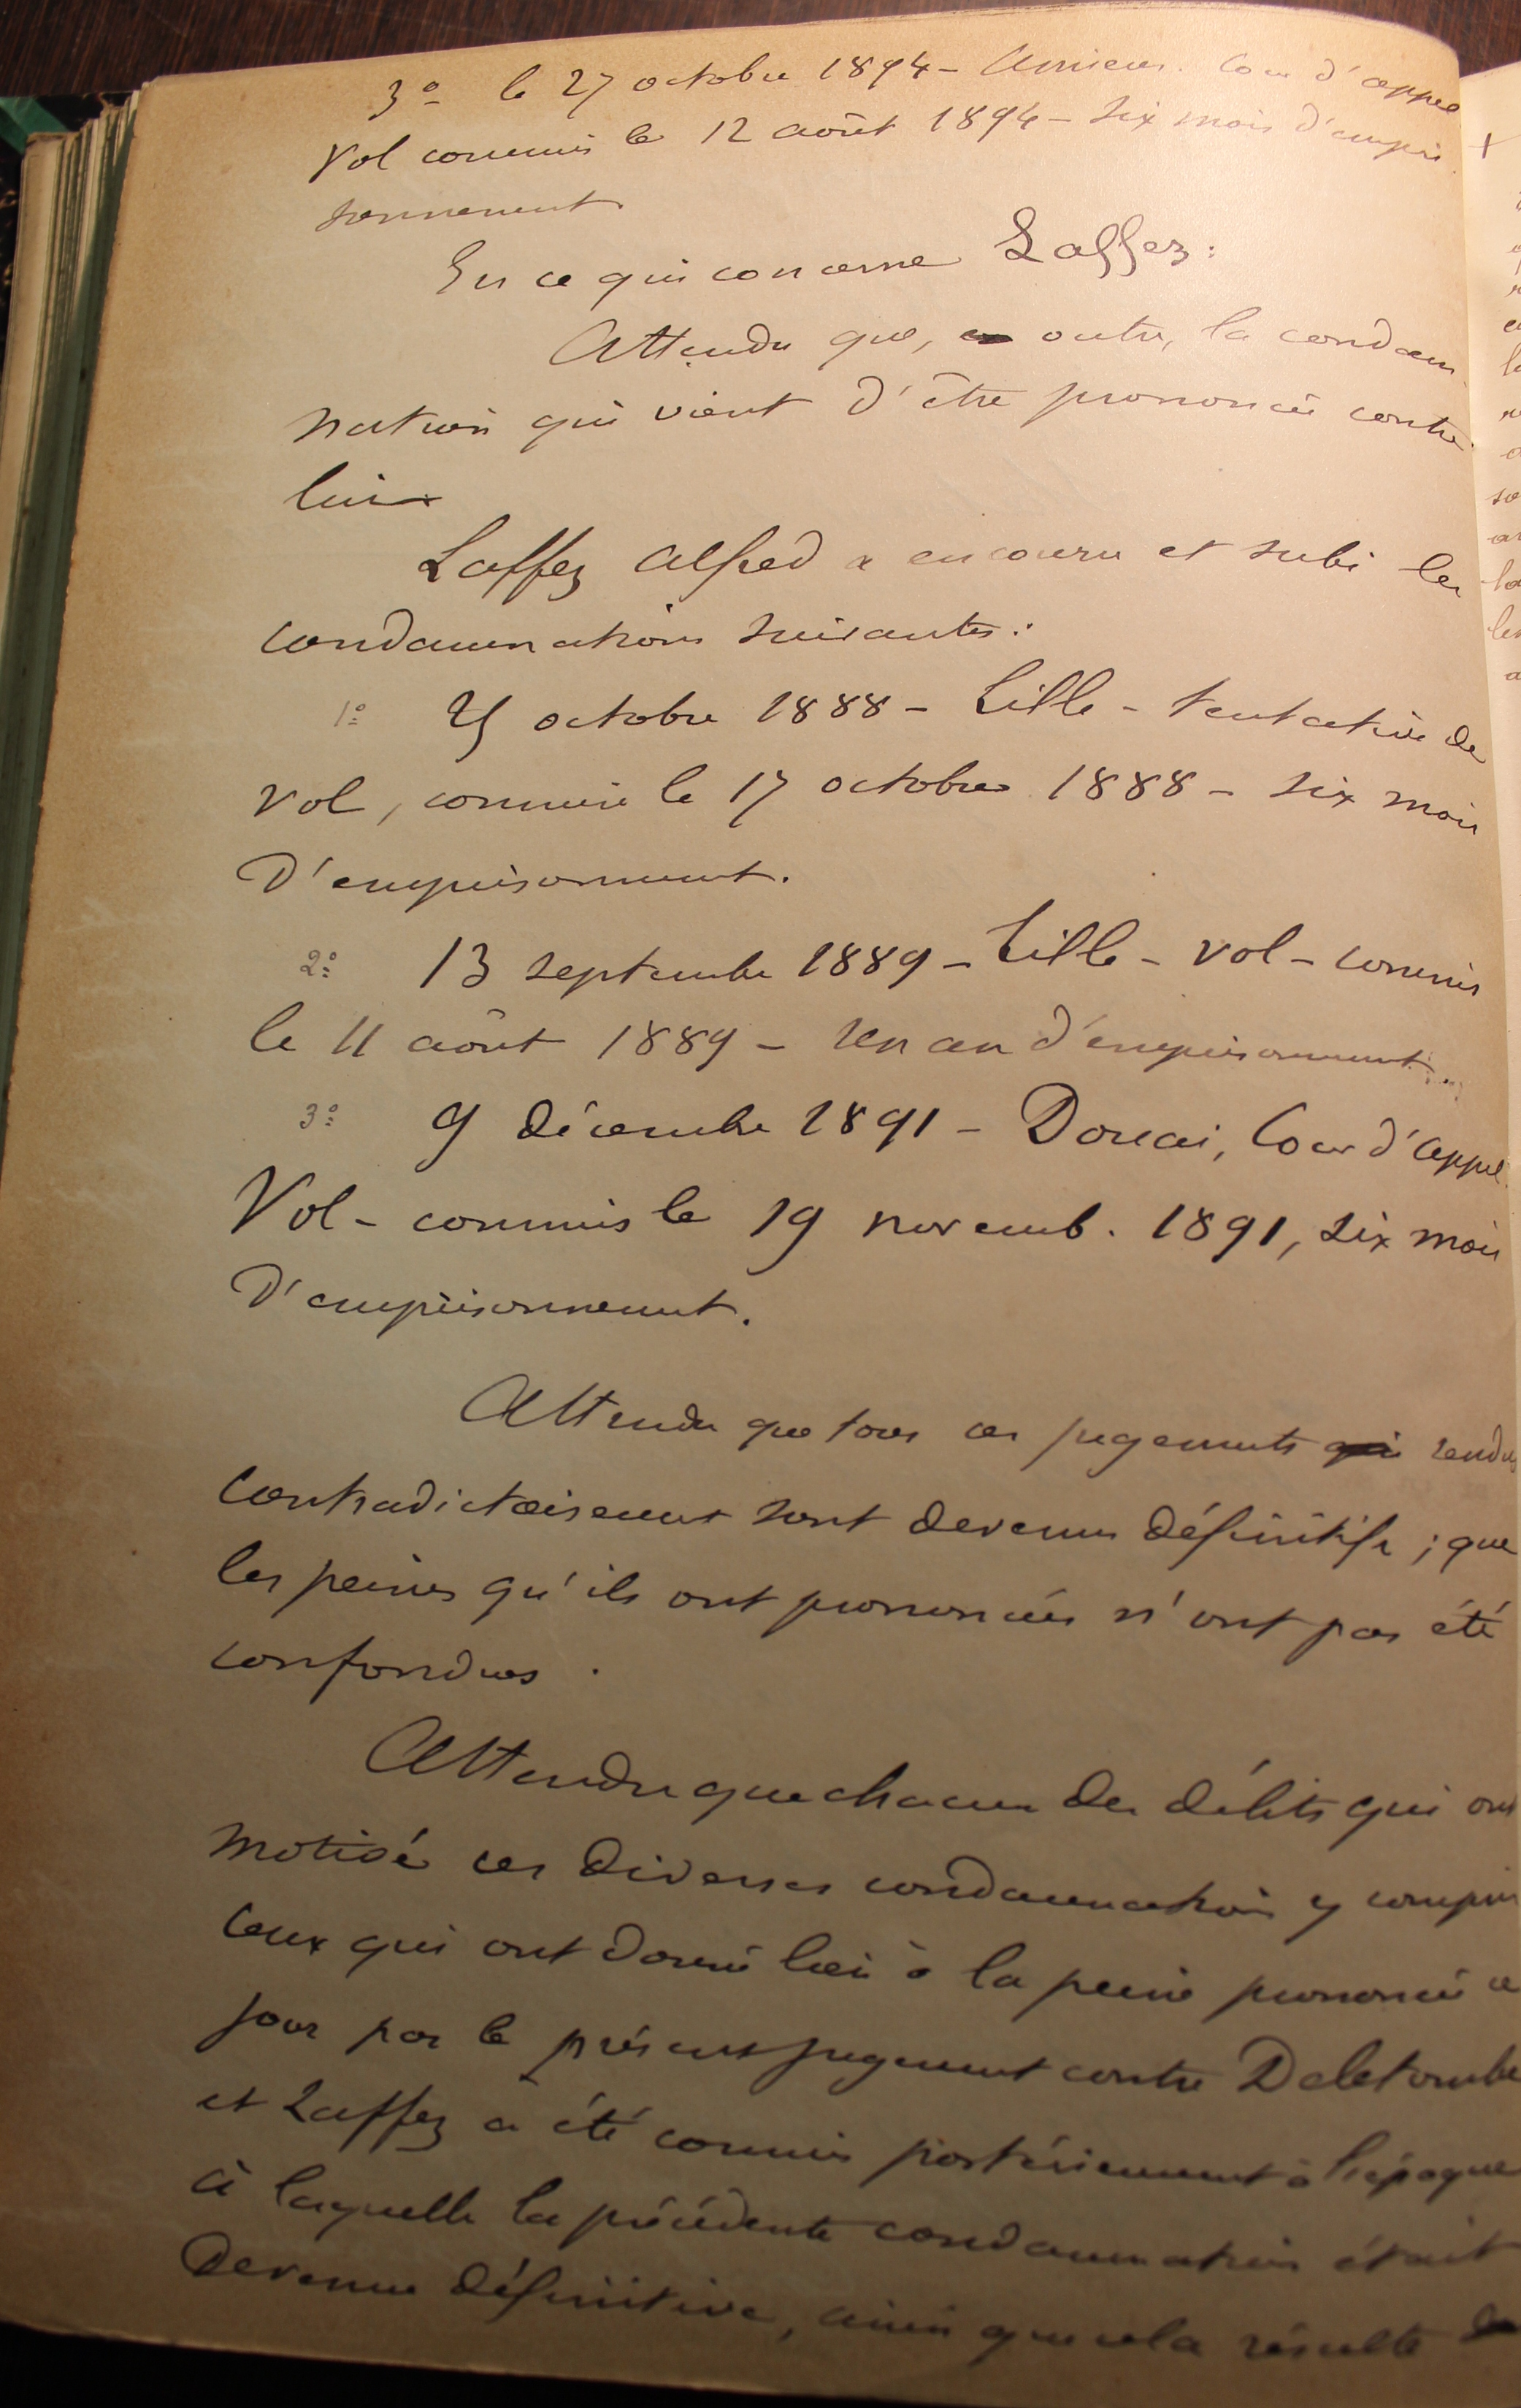 3º le 27 octobre 1894 - Amiens. Cour d'appel
Vol commis le 12 août 1894 - six mois d'empri
sonnement
En ce qui concerne Laffez :
Attendu que, en outre, la condam
nation qui vient d'être prononcée contre
lui
Laffez Alfred a encouru et subi les
condamnations suivantes :
1º octobre 1888 - Lille - tentative de
vol, commise le 17 octobre 1888 - six mois
d'emprisonnement.
2º 13 septembre 1889 - Lille - vol - commis
le 11 août 1889 - Un an d'emprisonnement.
3º 9 décembre 1891 - Douai, Cour d'appel.
Vol - commis le 19 novemb. 1891, six mois
d'emprisonnement.
Attendu que tous ces jugements qui rendus
contradictoirement sont devenus définitifs ; que
les peines qu'ils ont prononcées n'ont pas été
confondues .
Attendu que chacun des délits qui ont
motivé ces diverses condamnations y compris
ceux qui ont donné lieu à la peine prononcée ce
jour par le présent jugement contre Deletombe
et Laffez a été commis postérieurement à l'époque
à laquelle la précédente condamnation était
devenue définitive, ainsi que cela résulte